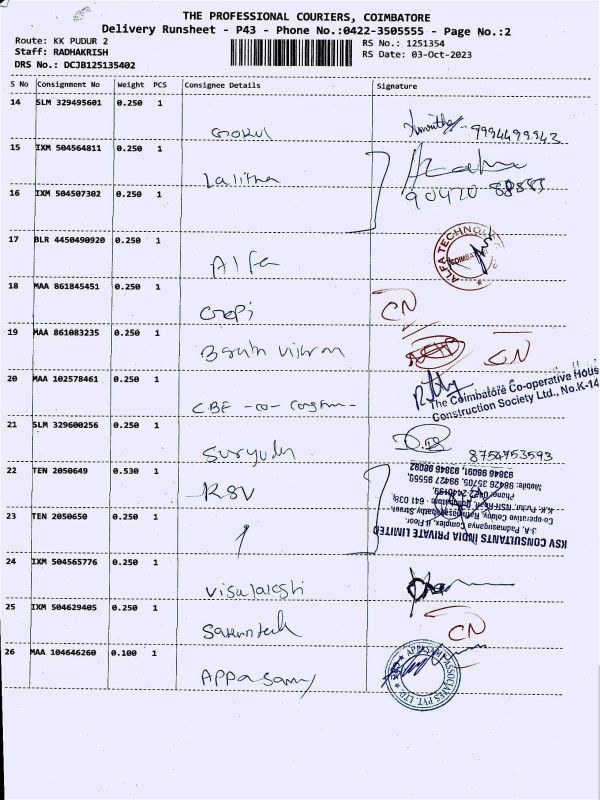 THE PROFESSIONAL COURIERS, COIMBATORE
Delivery Runsheet - P43 - Phone No.:0422-3505555 - Page No.:2
Route: KK PUDUR 2
RS No.: 1251354
Staff: RADHAKRISH
RS Date: 03-Oct-2023
DRS No.: DCJB125135402
S No Consignment No Weight PCS Consignee Details Signature
14 SLM 329495601 0.250 1
Gokul 9994499943
15 IXM 504564811 0.250 1
Lalitha
16 IXM 504507302 0.250 1
90420 88885
17 BLR 4450490920 0.250 1
Alfa ALFA TECHNOLO COIMBAT
18 MAA 861845451 0.250 1
Gopi CN
19 MAA 861083235 0.250 1
CN
20 MAA 102578461 0.250 1
CBE -co- The Coimbatore Co-operative Hous
Construction Society Ltd., No.K-14
21 SLM 329600256 0.250 1
8754753593
22 TEN 2050649 0.530 1
KSV
23 TEN 2050650 0.250 1
KSV CONSULTANTS INDIA PRIVATE LIMITED
3-A, Padmasuganya Complex, II Floor,
24 IXM 504565776 0.250 1
Visalakshi
25 IXM 504629405 0.250 1
CN
26 MAA 104646260 0.100 1
Appasamy APPASAMY ASSOCIATES PVT. LTD.